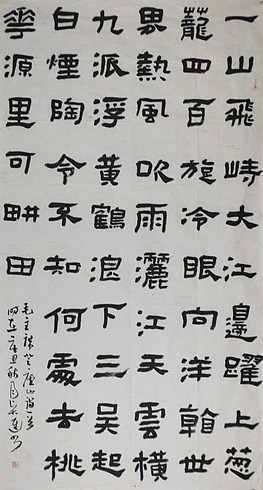 一山飛峙大江邊躍上葱
蘢四百旋冷眼向洋看世
界熱風吹雨灑江天雲橫
九派浮黃鶴浪下三吳起
白煙陶令不知何處去桃
華源里可畊田
毛主席登廬山詩